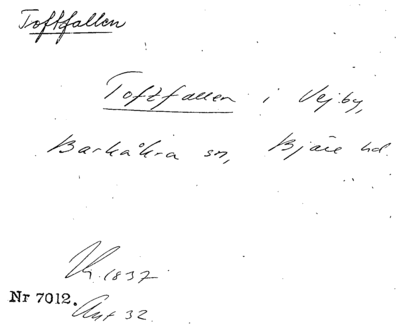 Toftfallen
Toftfallen i Vejby,
Barkåkra sn, Bjäre hd.
1837
Nr 7012.
Ant 32.